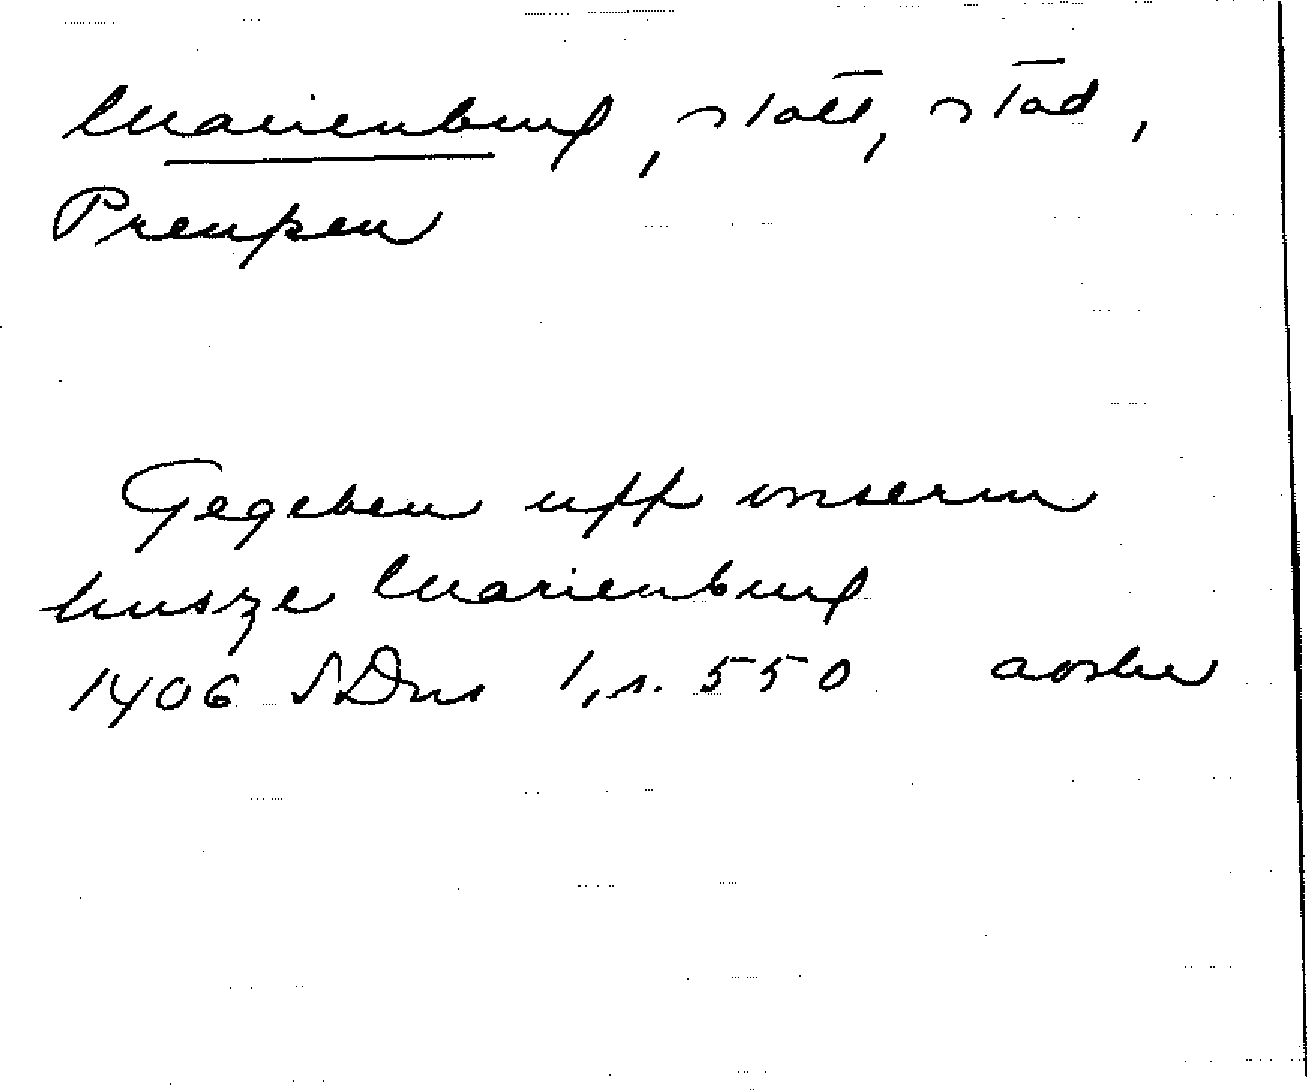 Marienburg, slott, stad,
Preuβen
Gegeben uff vnserm
husze Marienburg
1406 SDns 1, s. 550 avskr